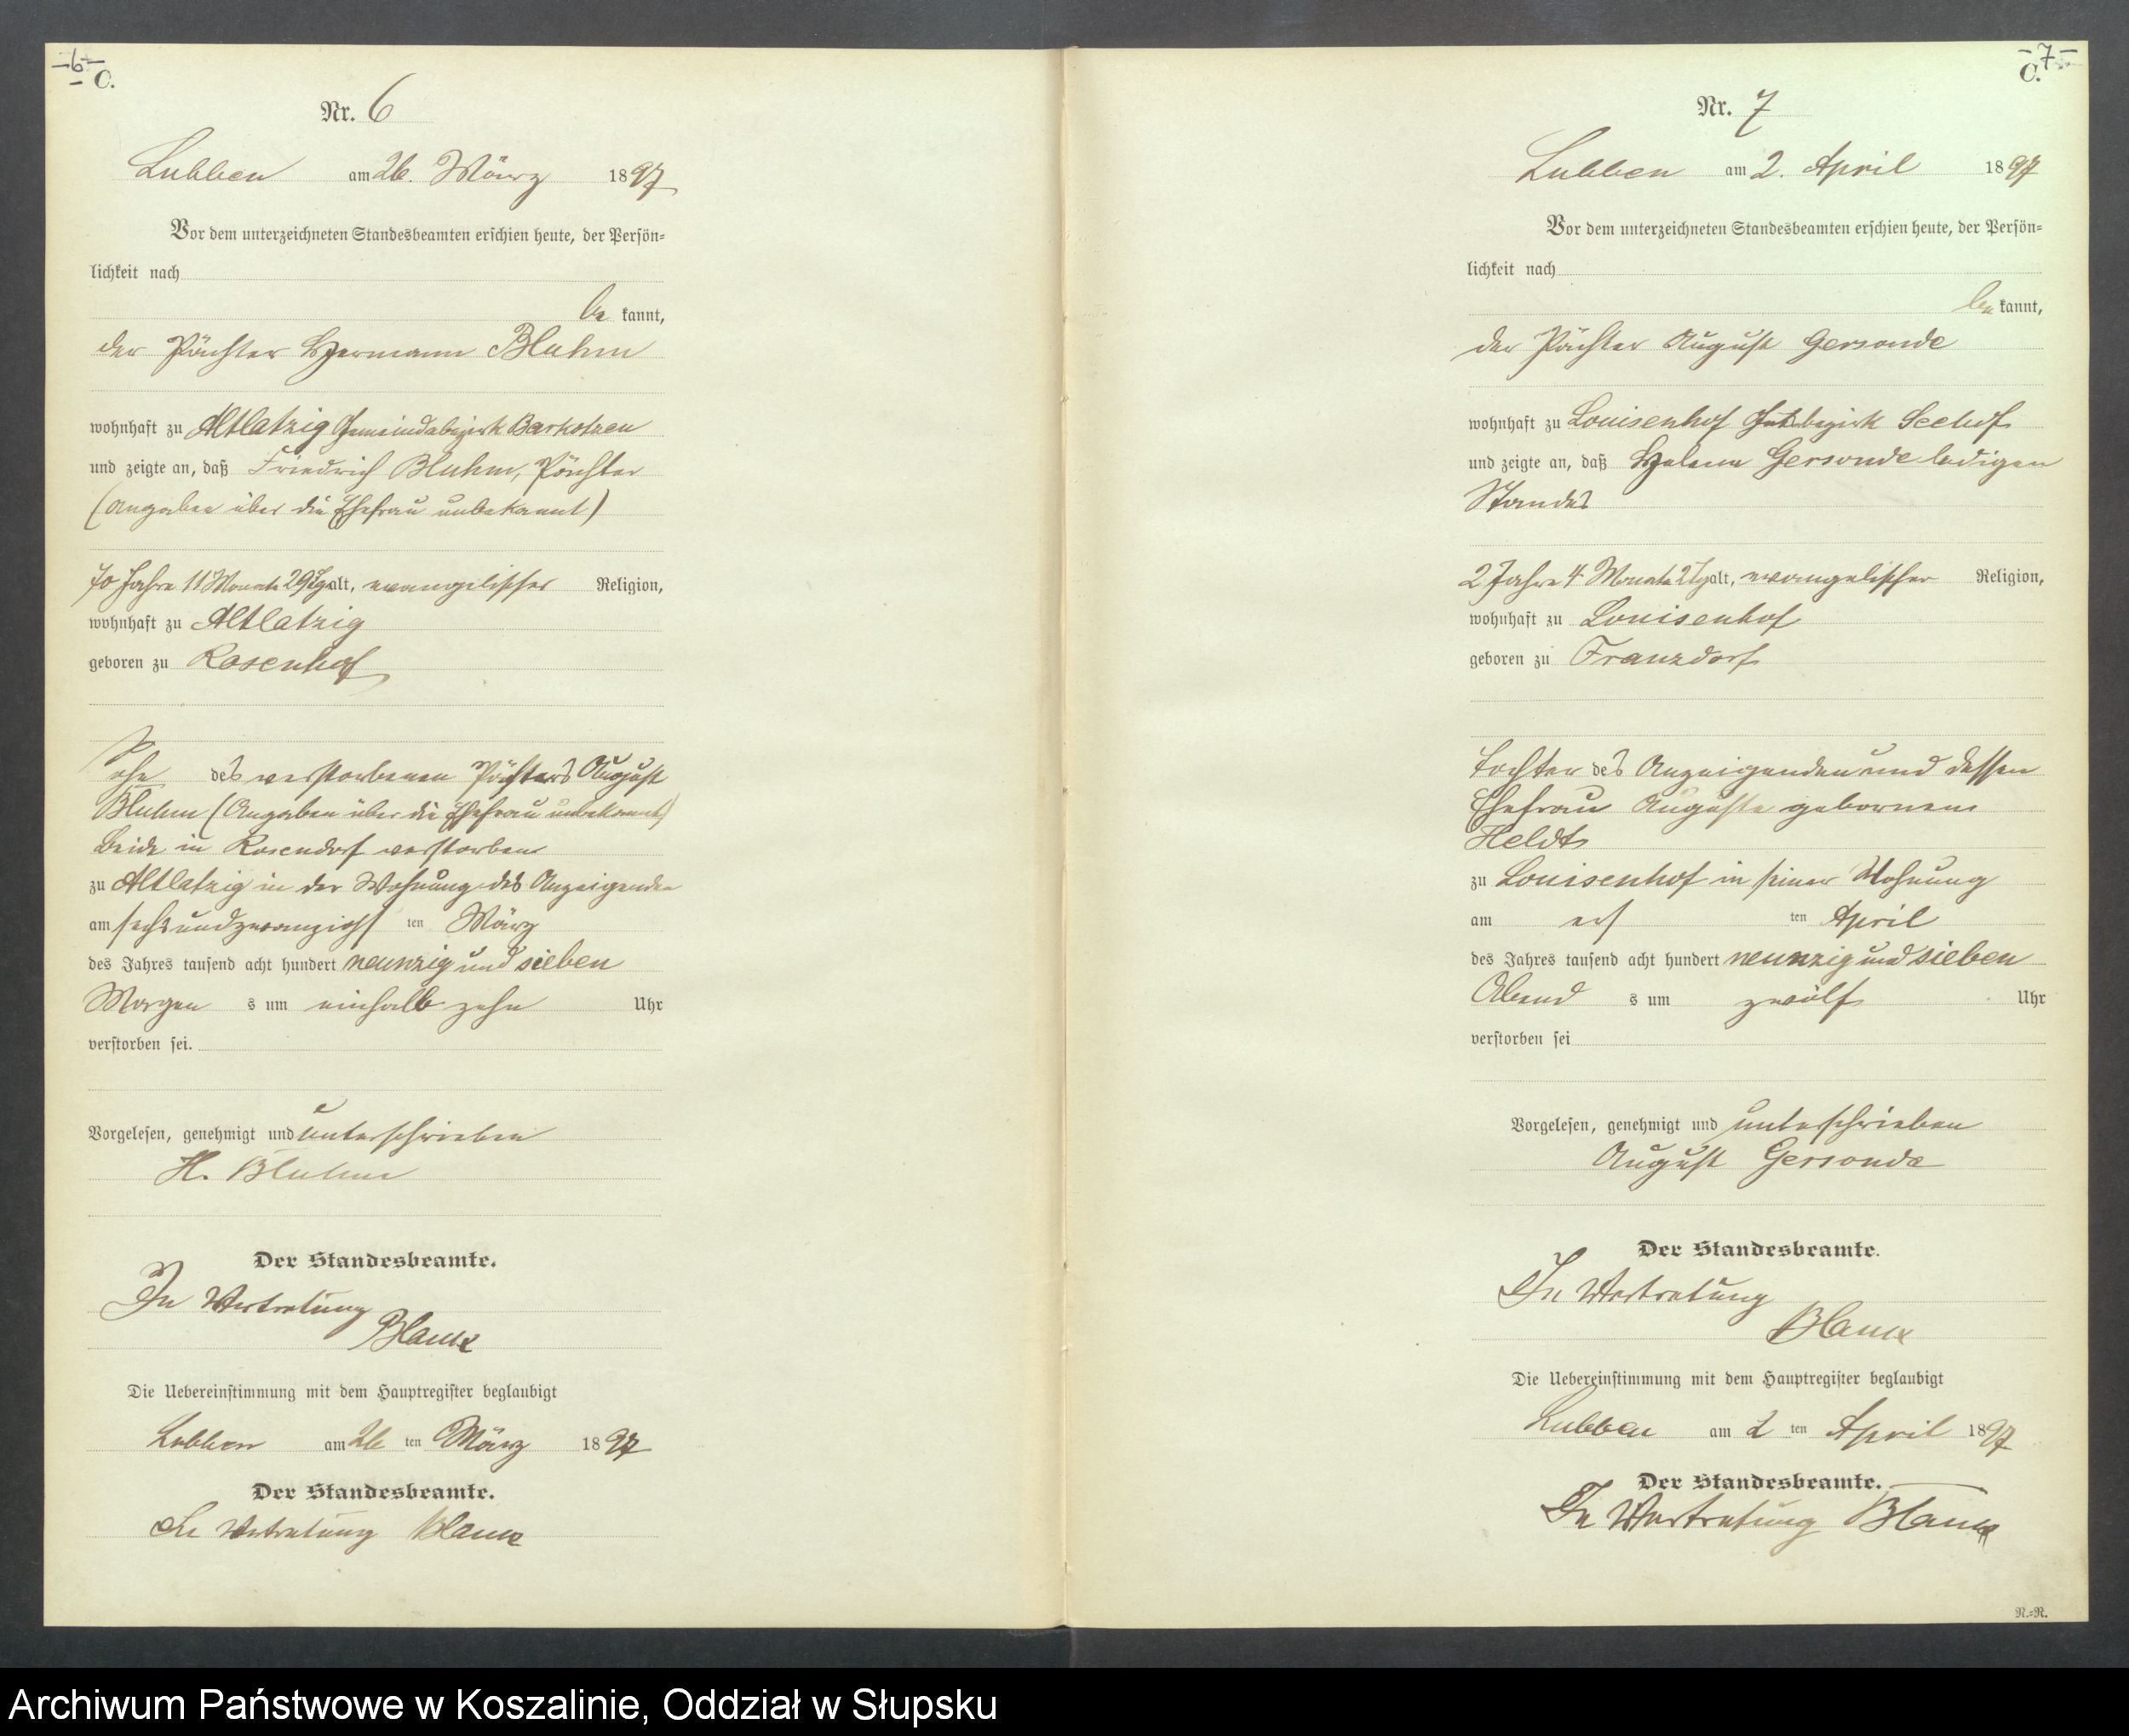 -6-
C.
Nr. 6
Lubben am 26. März 1897
Vor dem unterzeichneten Standesbeamten erschien heute, der Persön-
lichkeit nach
be kannt,
der Pächter Hermann Bluhm
wohnhaft zu Altlatzig Gemeindebezirk Barkotzen
und zeigte an, daß Friedrich Bluhm, Pächter
(Angaben über die Ehefrau unbekannt)
70 Jahre 11 Monate 29 Tg alt, evangelischer Religion,
wohnhaft zu Altlatzig
geboren zu Rosenhof
Sohn des verstorbenen Pächters August
Bluhm (Angaben über die Ehefrau unbekannt)
Beide in Rosendorf verstorben
zu Altlatzig in der Wohnung des Anzeigenden
am sechsundzwanzigst ten März
des Jahres tausend acht hundert neunzig und sieben
Morgen s um einhalb zehn Uhr
verstorben sei.
Vorgelesen, genehmigt und unterschrieben
H. Bluhm
Der Standesbeamte.
In Vertretung
Blanck
Die Uebereinstimmung mit dem Hauptregister beglaubigt
Lubben am 26 ten März 1897
Der Standesbeamte.
In Vertretung Blanck
-7-
C.
Nr. 7
Lubben am 2. April 1897
Vor dem unterzeichneten Standesbeamten erschien heute, der Persön-
lichkeit nach
be kannt,
der Pächter August Gersonde
wohnhaft zu Louisenhof Gutsbezirk Seehof
und zeigte an, daß Helene Gersonde ledigen
Standes
2 Jahre 4 Monate 2 Tg alt, evangelischer Religion,
wohnhaft zu Louisenhof
geboren zu Franzdorf
Tochter des Anzeigenden und dessen
Ehefrau Auguste gebornen
Heldt
zu Louisenhof in seiner Wohnung
am erst ten April
des Jahres tausend acht hundert neunzig und sieben
Abend s um zwölf Uhr
verstorben sei
Vorgelesen, genehmigt und unterschrieben
August Gersonde
Der Standesbeamte.
In Vertretung
Blanck
Die Uebereinstimmung mit dem Hauptregister beglaubigt
Lubben am 2 ten April 1897
Der Standesbeamte.
In Vertretung Blanck
N.=R.
Archiwum Państwowe w Koszalinie, Oddział w Słupsku